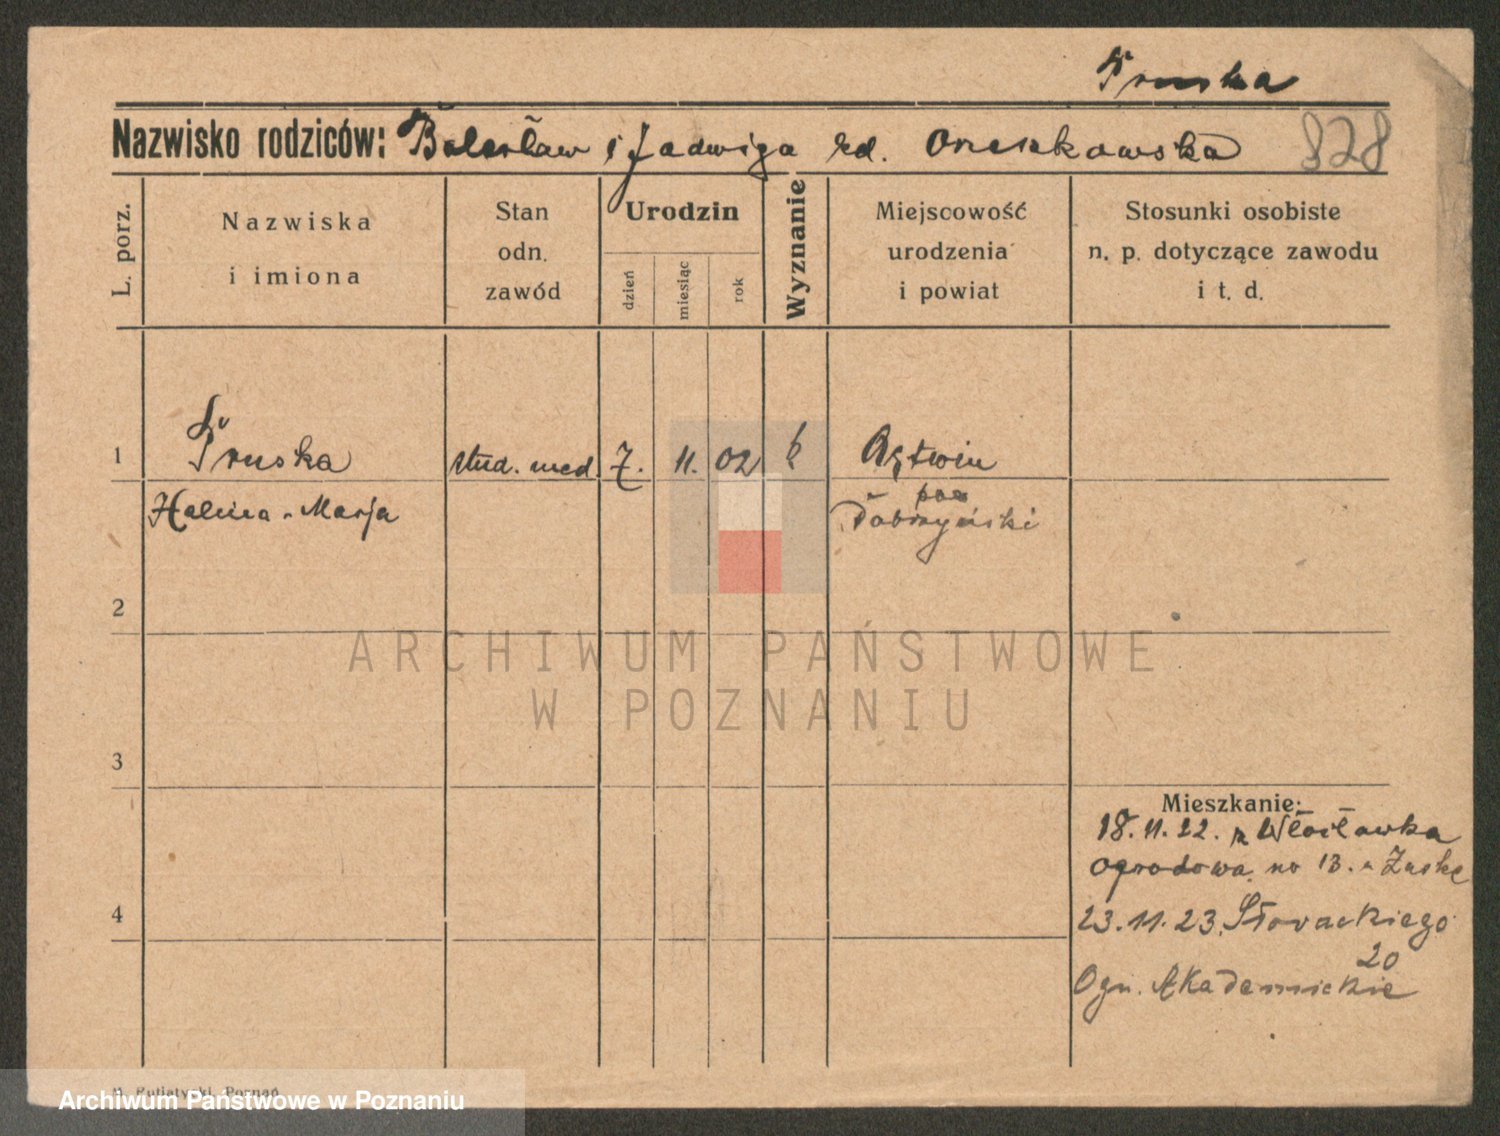 Pruska
Nazwisko rodziców: Bolesław i Jadwiga zd. Orzeszkowska
828
L. porz.
Nazwiska
i imiona
Stan
odn.
zawód
Urodzin
dzień
miesiąc
rok
Wyznanie
Miejscowość
urodzenia
i powiat
Stosunki osobiste
n. p. dotyczące zawodu
i t. d.
1
Pruska
stud. med.
7.
11.
02
k
Halina-Marja
pow
Dobrzyński
2
3
4
Mieszkanie:
18.11.22. z Włocławka
Ogrodowa no 13.
23.11.23. Słowackiego
20
Ogn. Akademickie
ARCHIWUM PAŃSTWOWE
W POZNANIU
Poznań
Archiwum Państwowe w Poznaniu